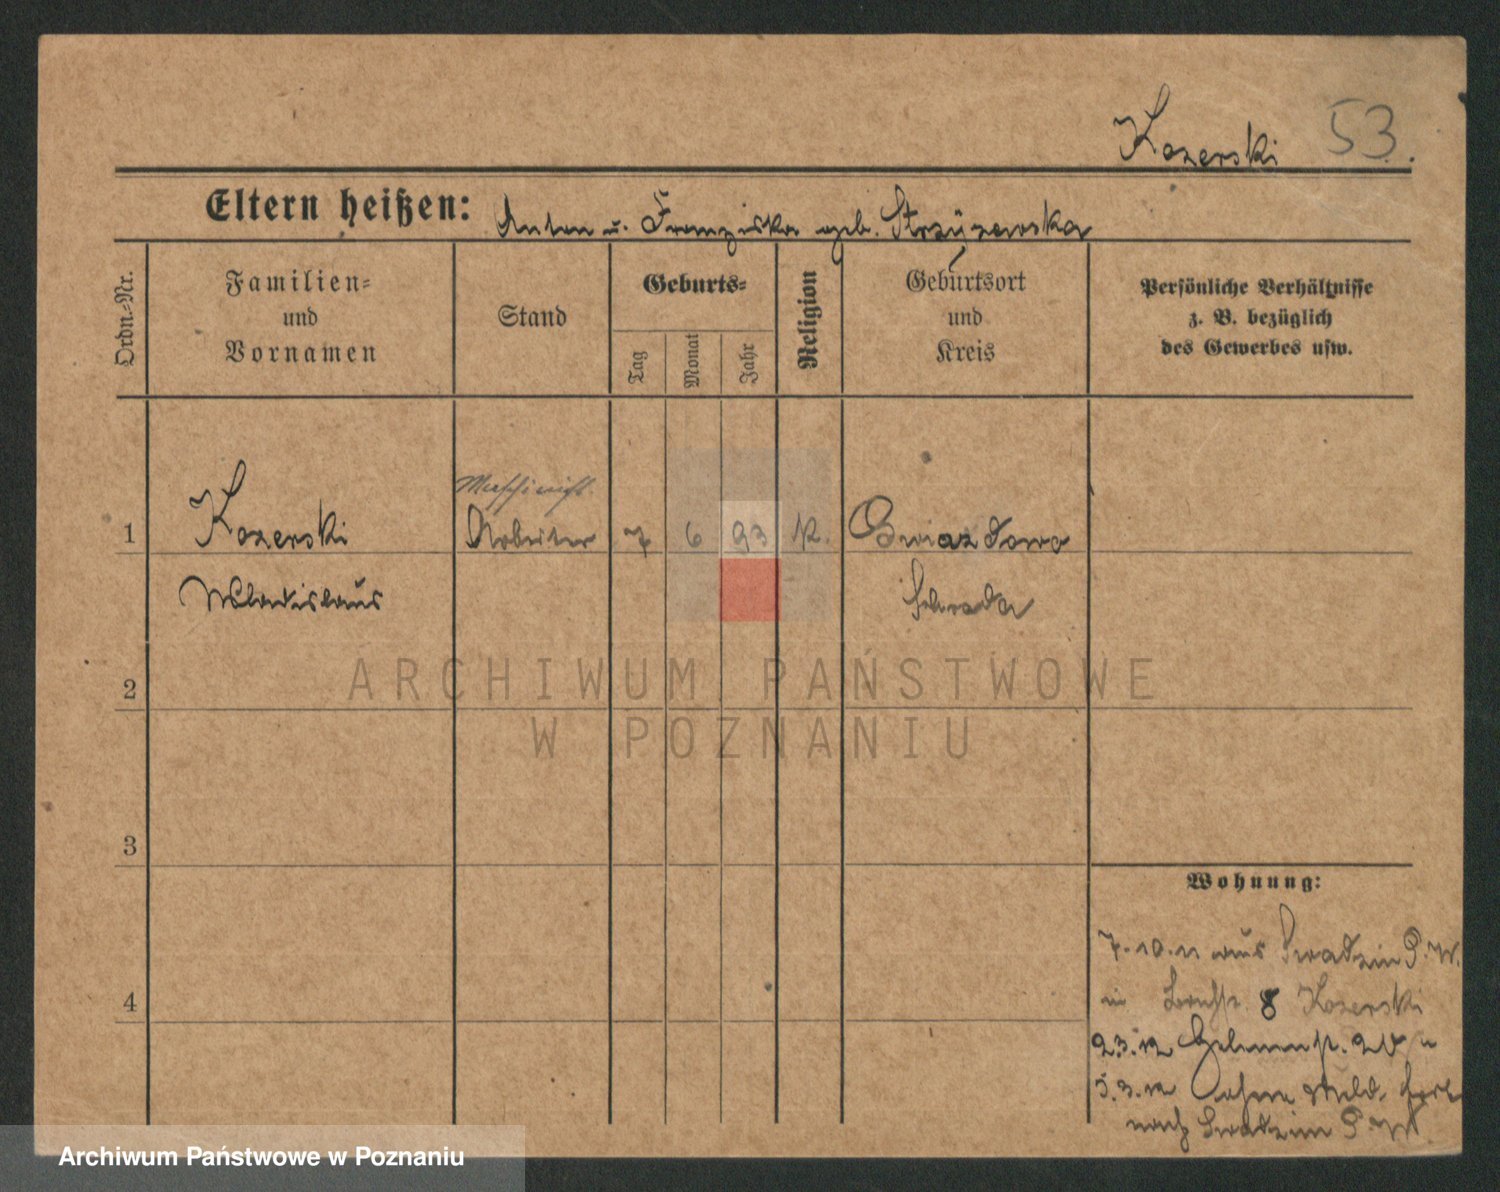 Kozerski 53.
Eltern heißen: Anton u. Franziska geb. Strzyżewska
Ordn.-Nr.
Familien-
und
Vornamen
Stand
Geburts-
Tag
Monat
Jahr
Religion
Geburtsort
und
Kreis
Persönliche Verhältnisse
z. B. bezüglich
des Gewerbes usw.
Maschinist
1 Kozerski Arbeiter 7 6 93 K. Gwiazdowo
Wladislaus Schroda
2
ARCHIWUM PAŃSTWOWE
W POZNANIU
3
Wohnung:
7.10.11 aus Swadzim P. W.
8 Kozerski
4
2.3.12
5.3.12 ohne Meld. fort
nach Swadzim P. W.
Archiwum Państwowe w Poznaniu